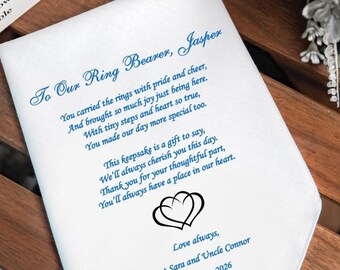 To Our Ring Bearer, Jasper
You carried the rings with pride and cheer,
And brought so much joy just being here.
With tiny steps and heart so true,
You made our day more special too.
This keepsake is a gift to say,
We'll always cherish you this day.
Thank you for your thoughtful part,
You'll always have a place in our heart.
Love always,
Sara and Uncle Connor
2026